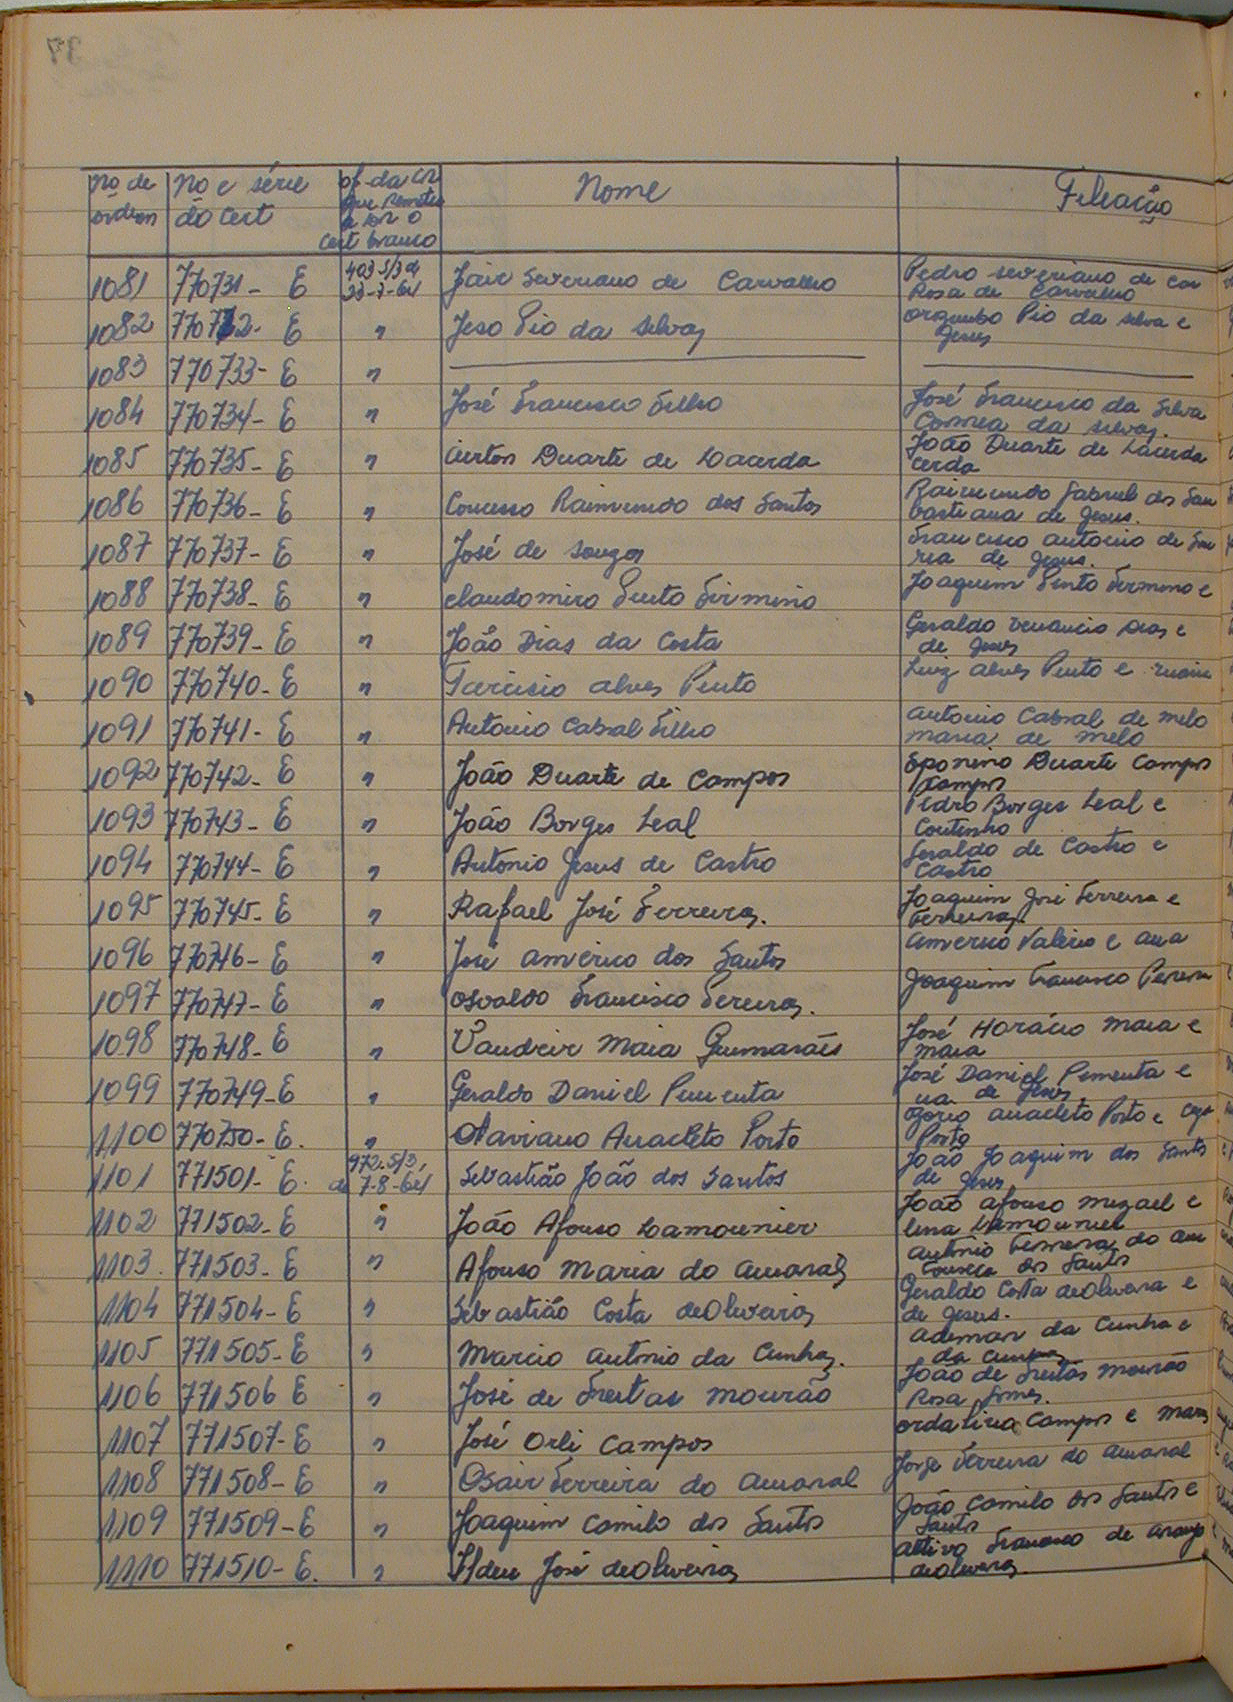 37
no de ordem no e série do cert of. da CR que remeteu a DR o cert branco Nome Filiação
1081 770731- E 403 S/3 de 23-7-64 Jair Severiano de Carvalho Pedro Severiano de Car
Rosa de Carvalho
1082 770732- E " Jeso Pio da Silva Pio da Silva e
Jesus
1083 770733- E "
1084 770734- E " José Francisco Filho José Francisco da Silva
Correa da Silva.
1085 770735- E " Airton Duarte de Lacerda João Duarte de Lacerda
cerda
1086 770736- E " Raimundo dos Santos Raimundo Gabriel dos San
bastiana de Jesus.
1087 770737- E " José de Souza Francisco Antonio de Sou
ria de Jesus.
1088 770738- E " Claudomiro Pinto Firmino Joaquim Pinto Firmino e
1089 770739- E " João Dias da Costa Geraldo Venancio Dias e
de Jesus
1090 770740- E " Tarcisio Alves Pinto Luiz Alves Pinto e
1091 770741- E " Antonio Cabral Filho Antonio Cabral de Melo
maria de Melo
1092 770742- E " João Duarte de Campos Eponino Duarte Campos
Campos
1093 770743- E " João Borges Leal Pedro Borges Leal e
Coutinho
1094 770744- E " Antonio Jesus de Castro Geraldo de Castro e
Castro
1095 770745- E " Rafael José Ferreira. Joaquim José Ferreira e
Ferreira.
1096 770746- E " José Americo dos Santos Americo Valério e Ana
1097 770747- E " Osvaldo Francisco Pereira. Joaquim Francisco Pereira
1098 770748- E " Vandeir Maia Guimarães José Horácio Maia e
Maia
1099 770749- E " Geraldo Daniel Pimenta José Daniel Pimenta e
na de Jesus
1100 770750- E. " Otaviano Anacleto Porto Anacleto Porto e
Porto
1101 771501- E. 972-S/3, de 7-8-64 Sebastião João dos Santos João Joaquim dos Santos
de Jesus
1102 771502- E " João Afonso Lamounier João Afonso Mizael e
lina Lamounier
1103. 771503- E " Afonso Maria do Amaral Antônio Ferreira do Am
dos Santos
1104 771504- E " Sebastião Costa de Oliveira Geraldo Costa de Oliveira e
de Jesus.
1105 771505- E " Marcio Antonio da Cunha. Ademar da Cunha e
da Cunha
1106 771506 E " José de Freitas Mourão João de Freitas Mourão
Rosa Gomes.
1107 771507- E " José Orli Campos Campos e Maria
1108 771508- E " Osair Ferreira do Amaral Jorge Ferreira do Amaral
1109 771509- E " Joaquim Camilo dos Santos João Camilo dos Santos e
Santos
1110 771510- E. " Ildeu José de Oliveira Francisco de Araujo
de Oliveira.